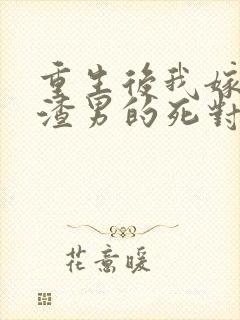 重生後我嫁
渣男的死對
花意暖